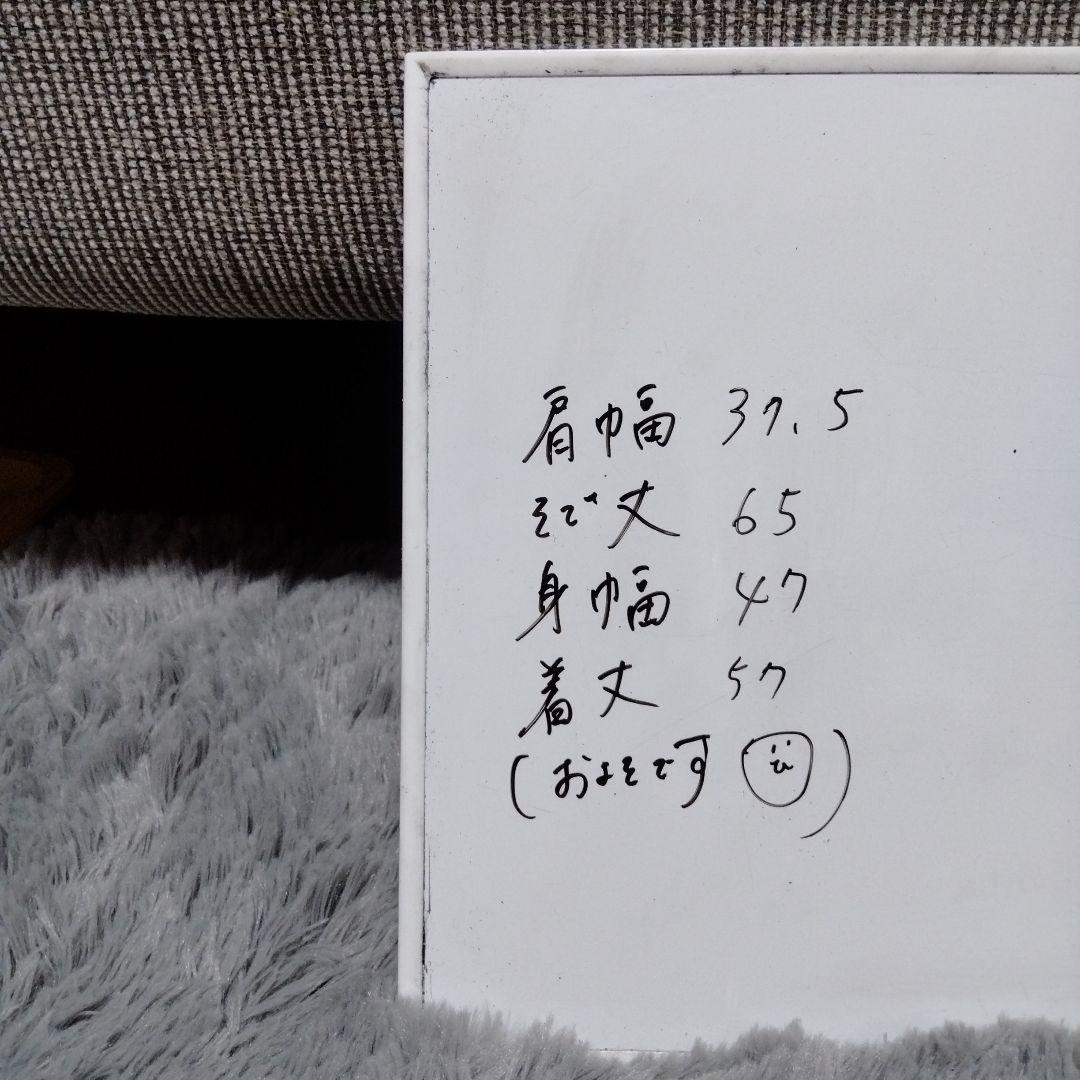 肩幅 37.5
そで丈 65
身幅 47
着丈 57
(およそです)